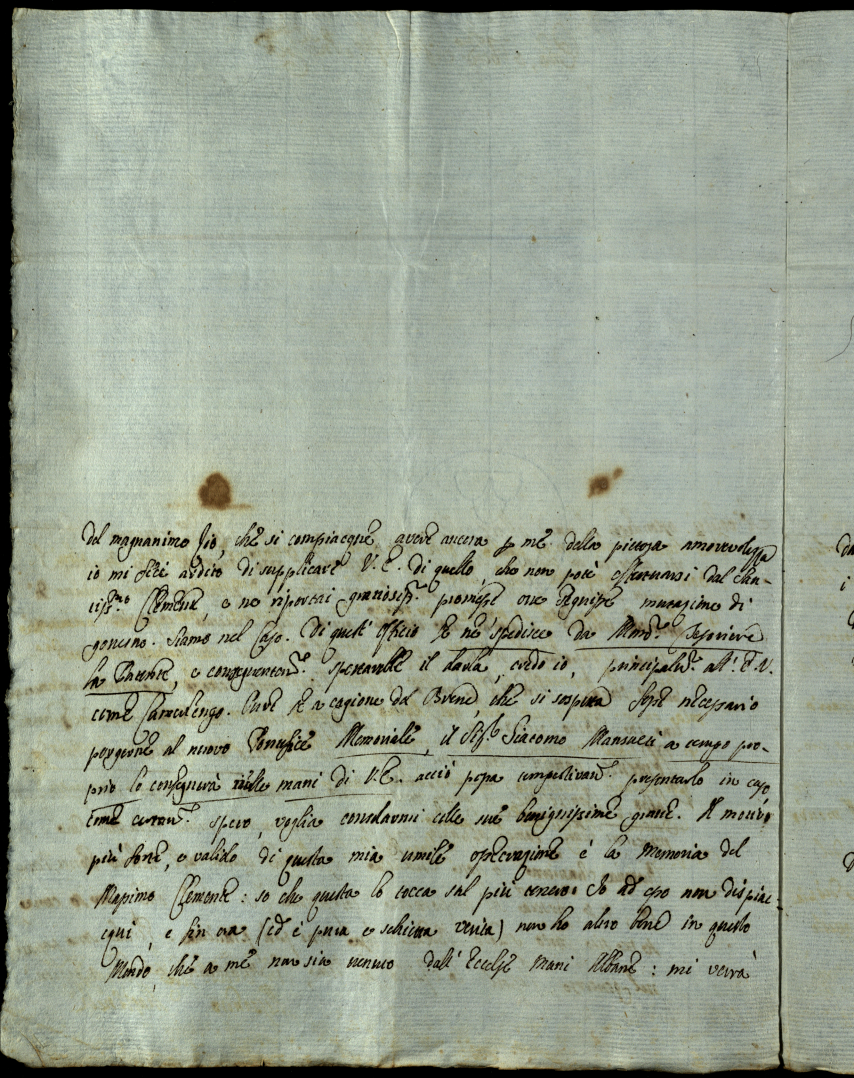 del magnanimo Zio, che si compiacque avere ancora p me della pietosa amorevolezza
io mi feci ardito di supplicare V. E. di quello, che non potè effettuarsi dal Cha-
riss.mo Clemente, e ne riportai graziosiss.e promesse ove seguisse mutazione di
governo. Siamo nel Caso. Di quest' Officio se ne spedisce da Mons.r Tesoriere
la Patente, e conseguentem.e spetterebbe il darla, credo io, principalm.e all' E. V.
come Camerlengo. Pure se a cagione del Breve, che si sospira fosse necessario
porgerne al nuovo Pontefice Memoriale, il Sig.r Giacomo Mansueti a tempo pro-
prio lo consegnerà nelle mani di V. E. acciò possa tempestivam.e presentarlo in caso
come certam.e spero, voglia consolarmi colle sue benignissime grazie. Il motivo
più forte, e valido di questa mia umile operazione è la memoria del
Massimo Clemente: so che questa lo tocca sul più tenero: Io ad esso non dispiac-
cqui, e fin ora (ed è pura e schietta verità) non ho altro bene in questo
Mondo, che a me non sia venuto dall' Eccelse Mani Albane: mi verrà